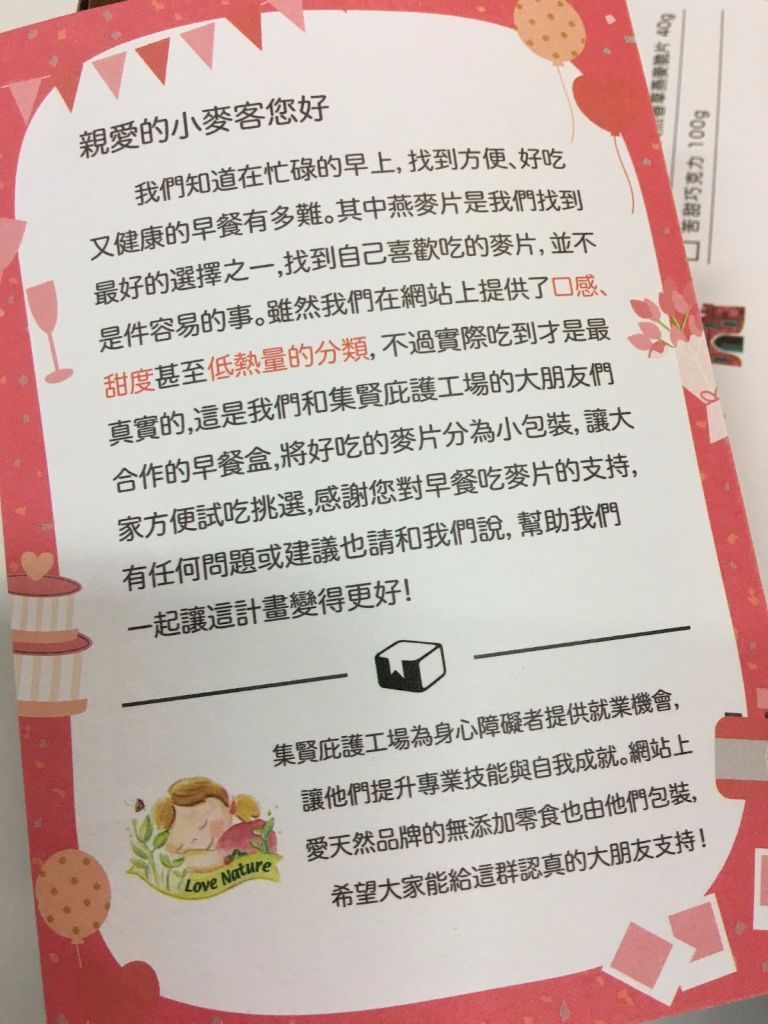 親愛的小麥客您好
我們知道在忙碌的早上，找到方便、好吃
又健康的早餐有多難。其中燕麥片是我們找到
最好的選擇之一，找到自己喜歡吃的麥片，並不
是件容易的事。雖然我們在網站上提供了口感、
甜度甚至低熱量的分類，不過實際吃到才是最
真實的，這是我們和集賢庇護工場的大朋友們
合作的早餐盒，將好吃的麥片分為小包裝，讓大
家方便試吃挑選，感謝您對早餐吃麥片的支持，
有任何問題或建議也請和我們說，幫助我們
一起讓這計畫變得更好！
集賢庇護工場為身心障礙者提供就業機會，
讓他們提升專業技能與自我成就。網站上
愛天然品牌的無添加零食也由他們包裝，
希望大家能給這群認真的大朋友支持！
Love Nature
燕麥脆片 40g
香甜巧克力 100g